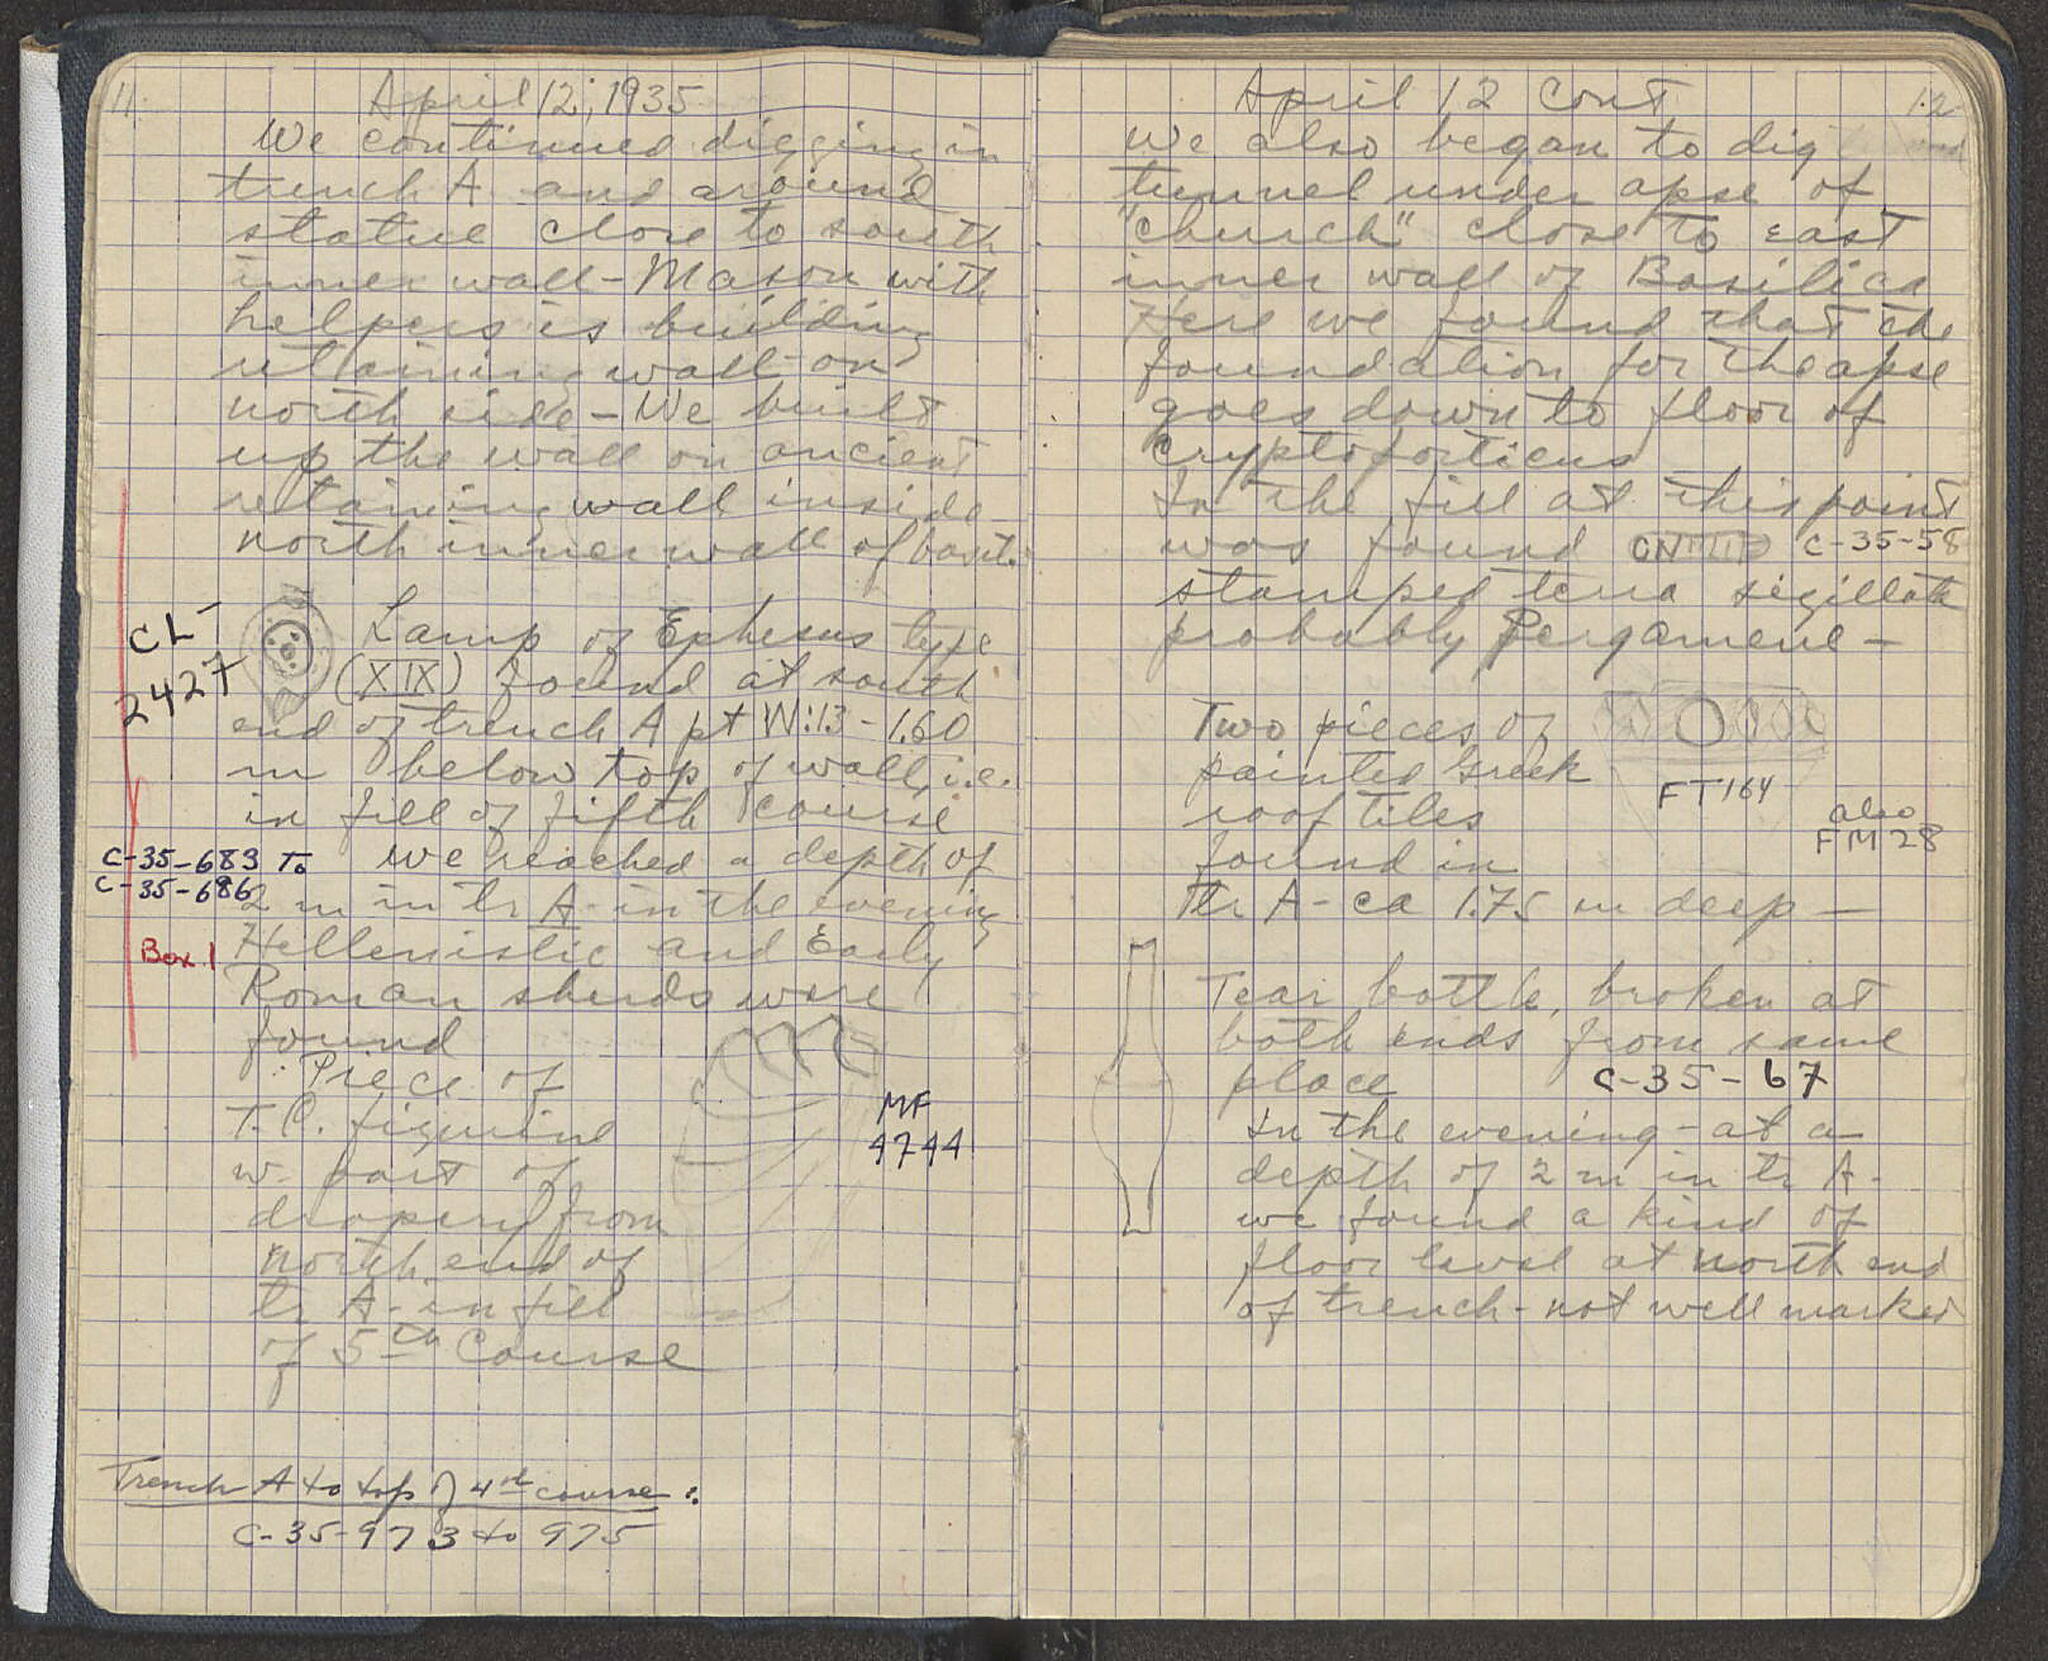 11.
April 12, 1935
We continued digging in
trench A and around
statue close to south
inner wall - Mason with
helpers is building
retaining wall on
north side - We built
up the wall on ancient
retaining wall inside
north inner wall of
CL-
2427
Lamp of Ephesus type
(XIX) found at south
end of trench A pt W:13 - 1.60
m below top of wall, i.e.
in fill of fifth course
C-35-683 To
C-35-686
we reached a depth of
2 m in tr A in the evening
Box 1
Hellenistic and Early
Roman sherds were
found
Piece of
T.C. figurine
w. part of
drapery from
north end of
tr A - in fill
of 5th Course
MF
4744
Trench A to top of 4th course:
C-35-973 to 975
12
April 12 Cont
We also began to dig
tunnel under apse of
"church" close to east
inner wall of Basilica
Here we found that the
foundation for the apse
goes down to floor of
Cryptoporticus
In the fill at this point
was found C-35-58
stamped terra sigillata
probably Pergamene -
Two pieces of
painted Greek
roof tiles
found in
Tr A - ca 1.75 m deep -
FT 164
also
FM 28
Tear bottle, broken at
both ends from same
place C-35-67
In the evening - at a
depth of 2 m in tr A -
we found a kind of
floor level at north end
of trench - not well marked